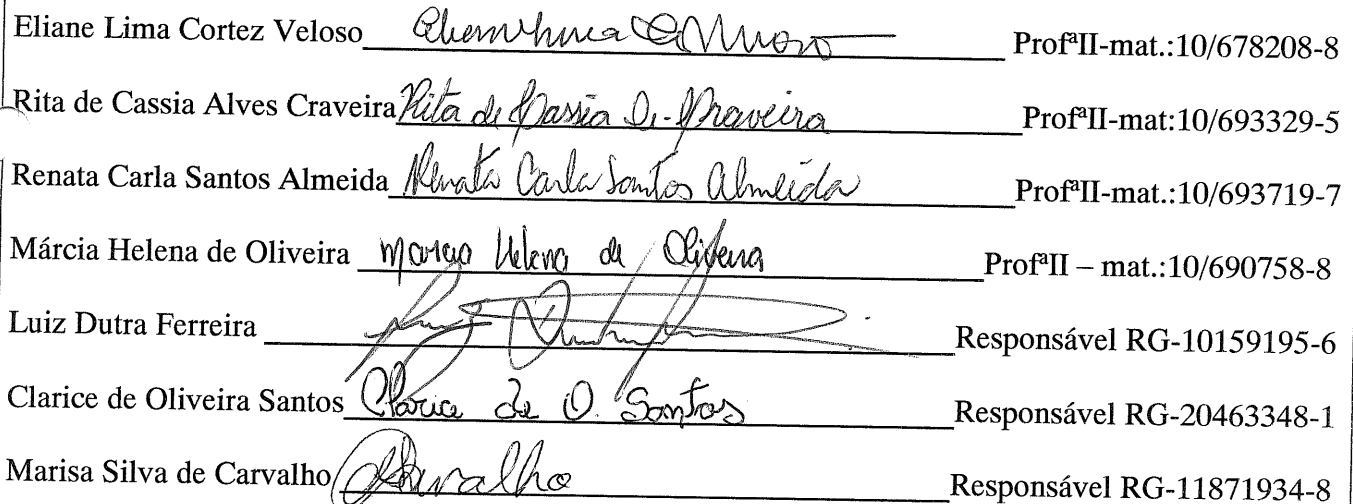 Eliane Lima Cortez Veloso ProfªII-mat.:10/678208-8
Rita de Cassia Alves Craveira Rita de Cassia A. Craveira ProfªII-mat:10/693329-5
Renata Carla Santos Almeida Renata Carla Santos Almeida ProfªII-mat.:10/693719-7
Márcia Helena de Oliveira Marcia Helena de Oliveira ProfªII – mat.:10/690758-8
Luiz Dutra Ferreira Responsável RG-10159195-6
Clarice de Oliveira Santos Clarice de O. Santos Responsável RG-20463348-1
Marisa Silva de Carvalho Carvalho Responsável RG-11871934-8